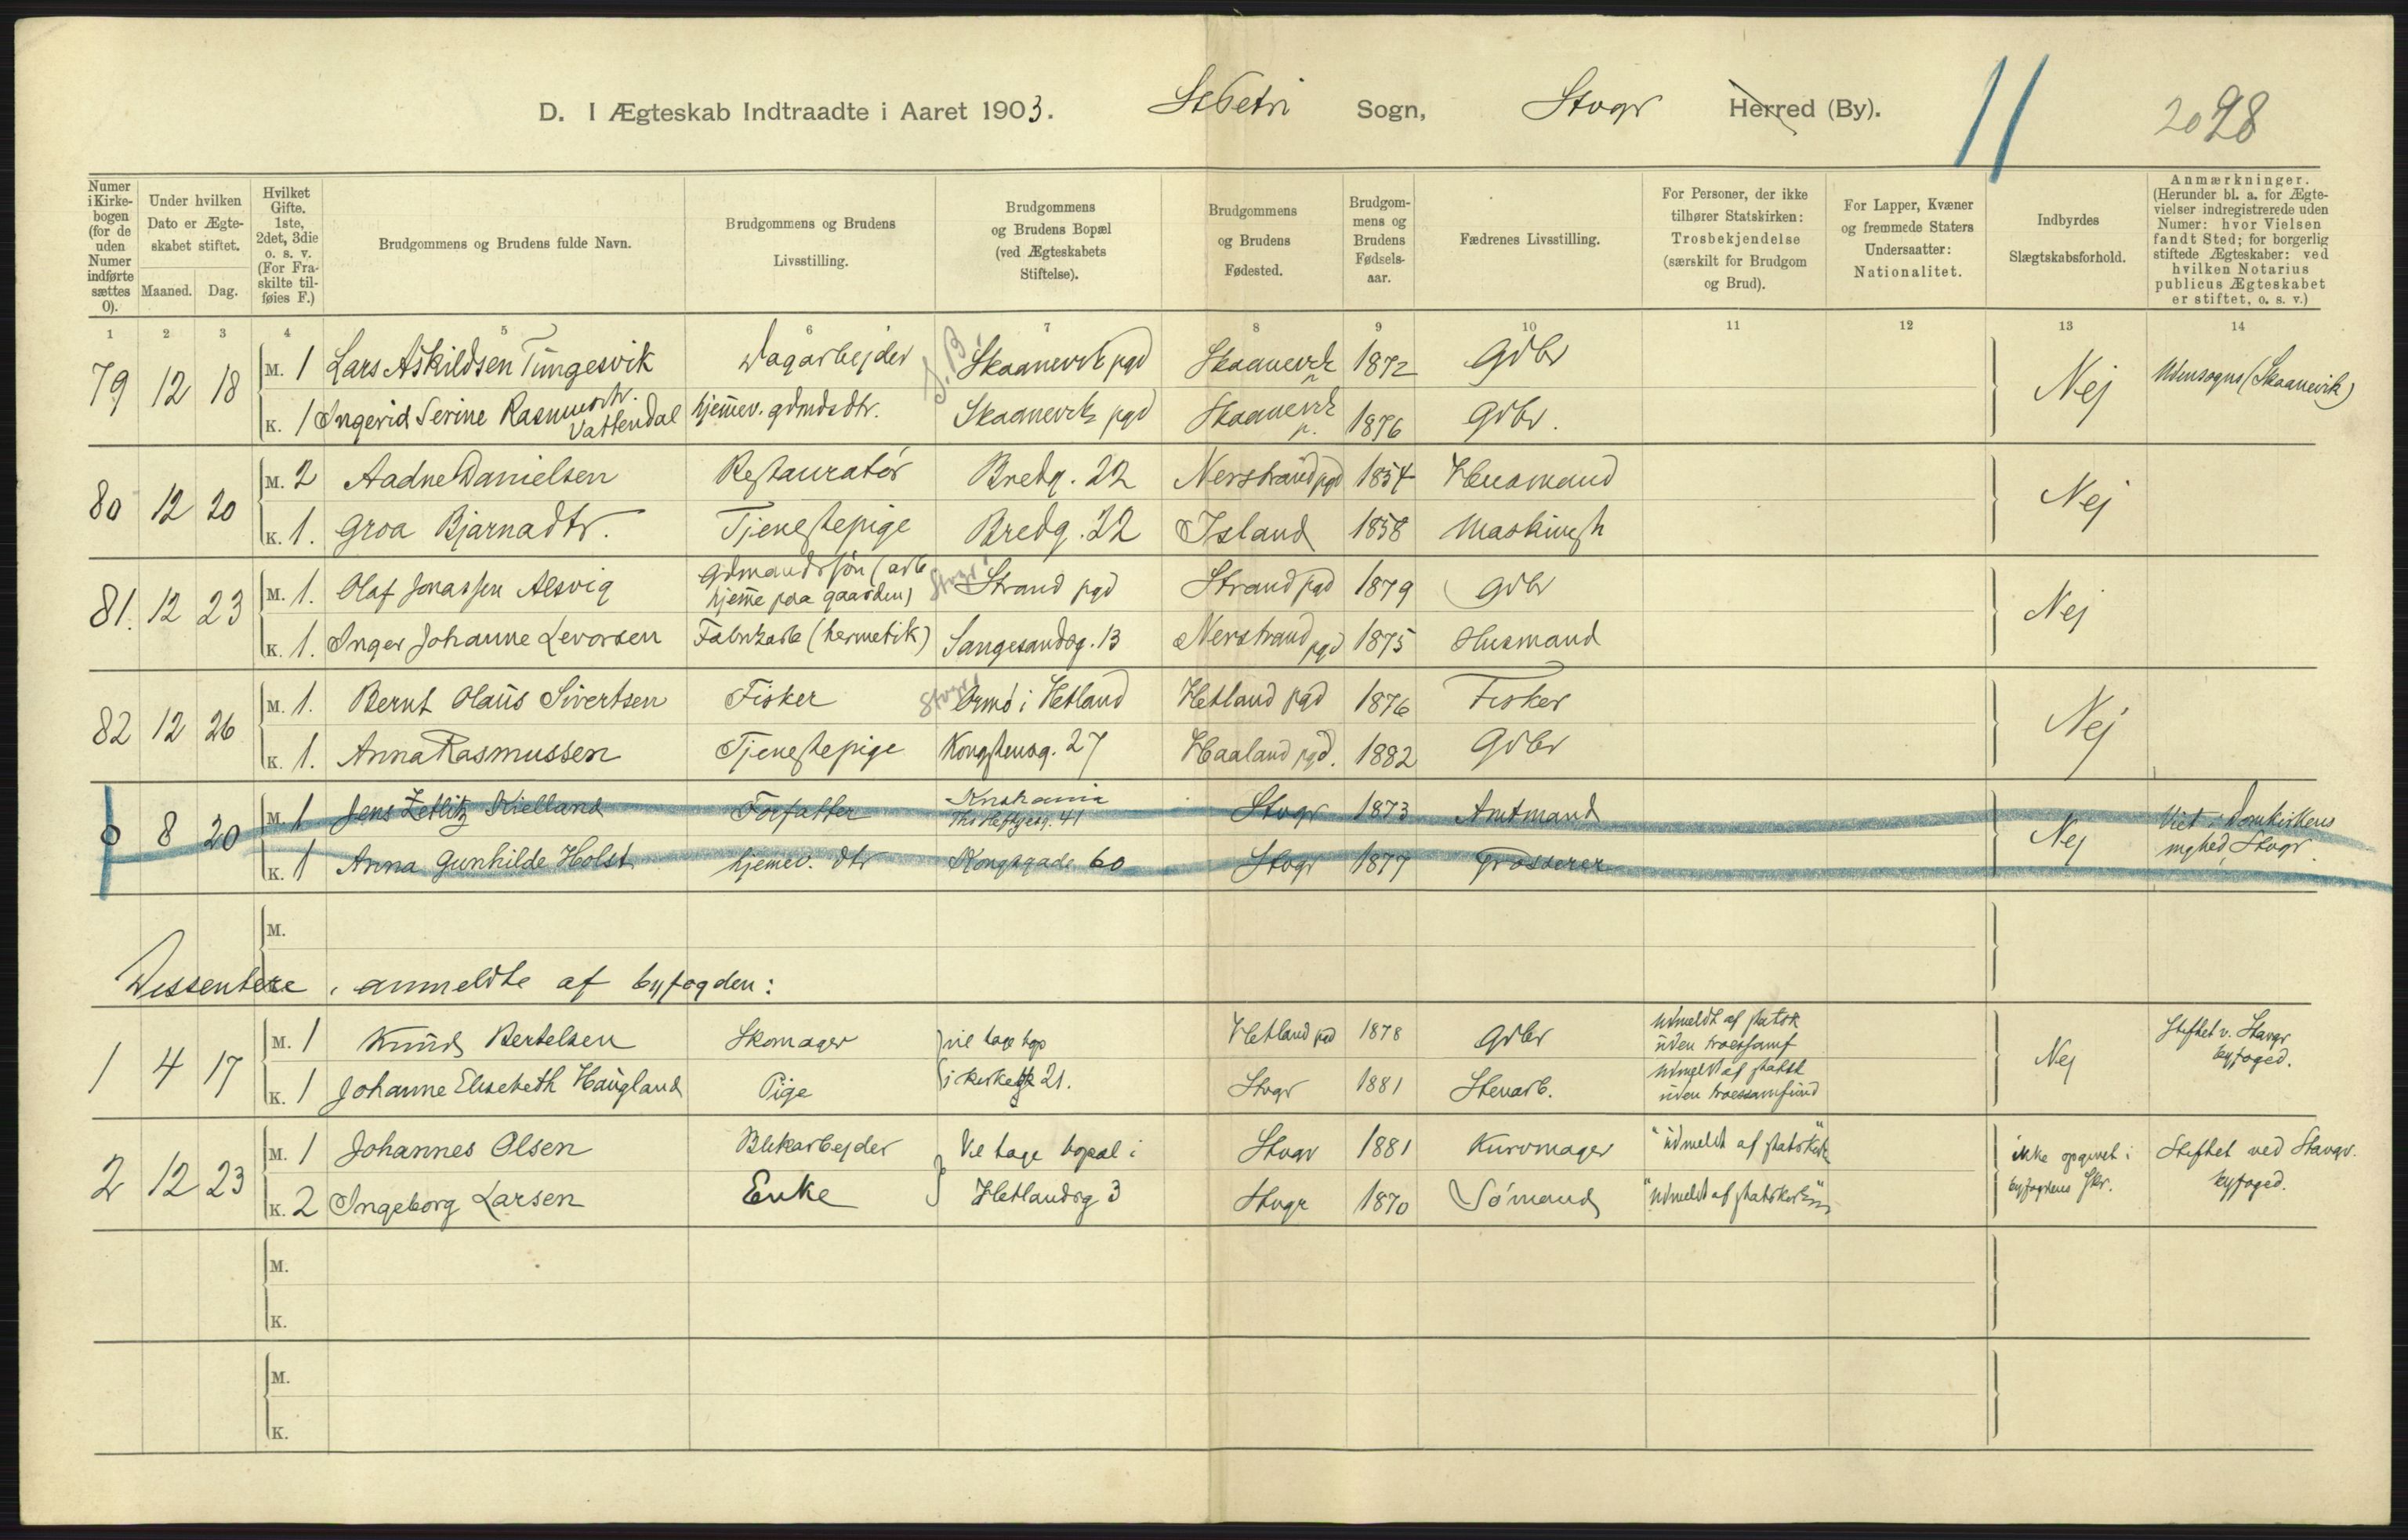 D. I Ægteskab Indtraadte i Aaret 1903. StPetri Sogn, Stvgr Herred (By). 11 2098
Numer i Kirkebogen (for de uden Numer indførte sættes 0).
Under hvilken Dato er Ægteskabet stiftet.
Maaned. Dag.
Hvilket Gifte. 1ste, 2det, 3die o. s. v. (For Fraskilte tilføies F.)
Brudgommens og Brudens fulde Navn.
Brudgommens og Brudens Livsstilling.
Brudgommens og Brudens Bopæl (ved Ægteskabets Stiftelse).
Brudgommens og Brudens Fødested.
Brudgommens og Brudens Fødselsaar.
Fædrenes Livsstilling.
For Personer, der ikke tilhører Statskirken: Trosbekjendelse (særskilt for Brudgom og Brud).
For Lapper, Kvæner og fremmede Staters Undersaatter: Nationalitet.
Indbyrdes Slægtskabsforhold.
Anmærkninger. (Herunder bl. a. for Ægtevielser indregistrerede uden Numer: hvor Vielsen fandt Sted; for borgerlig stiftede Ægteskaber: ved hvilken Notarius publicus Ægteskabet er stiftet, o. s. v.)
1 2 3 4 5 6 7 8 9 10 11 12 13 14
79 12 18 M. 1 Lars Askildsen Tungesvik Dagarbejder Skaanevik pgd Skaanevik p 1872 Gdbr Nej Udensogns (Skaanevik)
K. 1 Ingerid Serine Rasmusdtr. Vattendal hjemmev. gdmdsdtr. Skaanevik pgd Skaanevik p. 1876 Gdbr.
80 12 20 M. 2 Aadne Danielsen Restauratør Bredg. 22 Nerstrand pgd 1854 Husmand Nej
K. 1. Groa Bjarnadtr. Tjenestepige Bredg. 22 Island 1858 Maskinist
81. 12 23 M. 1. Olaf Jonassen Alsvig Gdmandssøn (arb hjemme paa gaarden) Stvgr! Strand pgd Strand pgd 1879 Gdbr Nej
K. 1. Inger Johanne Levorsen Fabrikarb (hermetik) Sangesandsg. 13 Nerstrand pgd 1875 Husmand
82 12 26 M. 1. Bernt Olaus Sivertsen Fisker Stvgr! Ormø i Hetland Hetland pgd 1876 Fisker Nej
K. 1. Anna Rasmussen Tjenestepige Kongstensg. 27 Haaland pgd. 1882 Gdbr
0 8 20 M. 1 Jens Zetlitz Kielland Forfatter Kristiania Ths Heftyesg. 41 Stvgr 1873 Amtmand Nej Viet i Domkirkens mghed, Stvgr.
K. 1 Anna Gunhilde Holst hjemev. dtr Kongsgade 60 Stvgr 1877 Grosserer
M.
Dissentere, anmeldte af byfogden:
1 4 17 M. 1 Knud Bertelsen Skomager vil tage bop Hetland pgd 1878 Gdbr Udmeldt af statsk uden troessamf Nej Stiftet v. Stavgr byfoged.
K. 1 Johanne Elisebeth Haugland Pige i Kirkeg 21. Stvgr 1881 Stenarb. Udmeldt af statsk uden troessamfund
2 12 23 M. 1 Johannes Olsen Blikarbejder Vil tage bopæl i Stvgr 1881 Kurvmager "udmeldt af statskirk" ikke opgivet i byfogdens skr. Stiftet ved Stavgr. byfoged.
K. 2 Ingeborg Larsen Enke Hetlandsg 3 Stvgr 1870 Sømand "Udmeldt af statskirken"
M.
K.
M.
K.